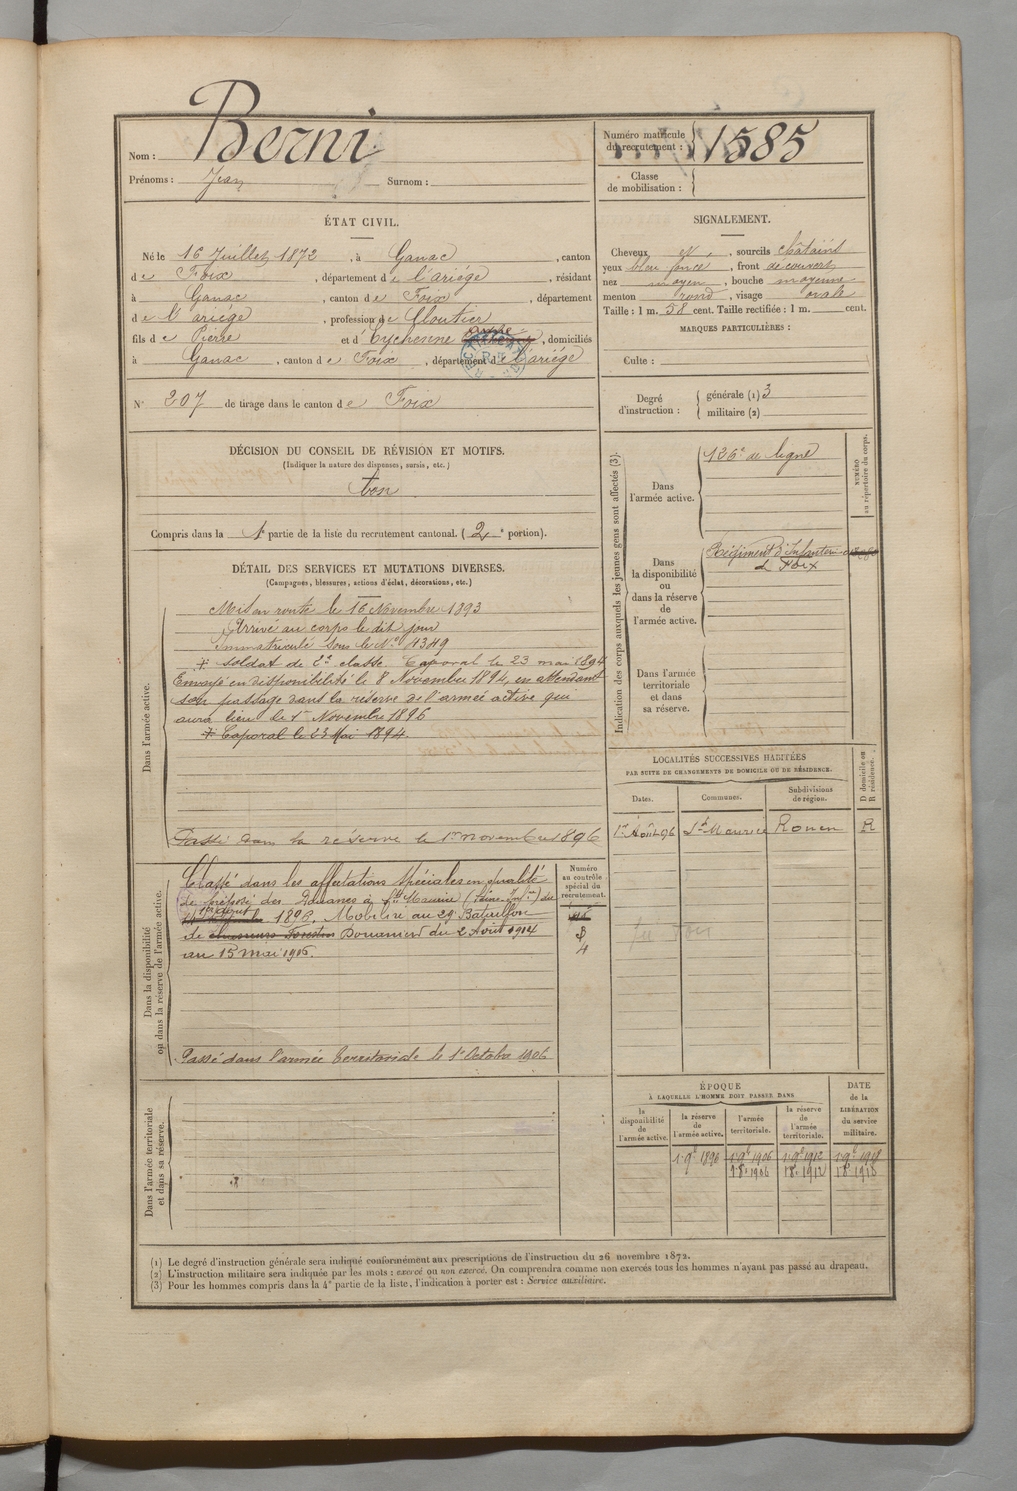 Nom : Berni
Prénoms : Jean Surnom :
Numéro matricule
du recrutement : 1585
Classe
de mobilisation :
ÉTAT CIVIL.
Né le 16 Juillet 1872, à Ganac, canton
de Foix, département de l'ariége, résidant
à Ganac, canton de Foix, département
de l'ariége, profession de Cloutier
fils de Pierre et d'Eychenne anne, domiciliés
à Ganac, canton de Foix, département de l'ariége
N° 207 de tirage dans le canton de Foix
SIGNALEMENT.
Cheveux et, sourcils châtains
yeux bleu foncé, front découvert
nez moyen, bouche moyenne
menton rond, visage ovale
Taille : 1 m. 58 cent. Taille rectifiée : 1 m. cent.
MARQUES PARTICULIÈRES :
Culte :
Degré
d'instruction :
générale (1) 3
militaire (2)
DÉCISION DU CONSEIL DE RÉVISION ET MOTIFS.
(Indiquer la nature des dispenses, sursis, etc.)
bon
Compris dans la 1e partie de la liste du recrutement cantonal. (2e portion).
DÉTAIL DES SERVICES ET MUTATIONS DIVERSES.
(Campagnes, blessures, actions d'éclat, décorations, etc.)
Dans l'armée active.
Mis en route le 16 Novembre 1893
Arrivé au corps le dit jour
Immatriculé sous le No 4349
* soldat de 2e classe Caporal le 23 mai 1894
Envoyé en disponibilité le 8 Novembre 1894, en attendant
son passage dans la réserve de l'armée active qui
aura lieu le 1er Novembre 1896
* Caporal le 23 Mai 1894.
Passé dans la réserve le 1er novembre 1896
Dans la disponibilité
ou dans la réserve de l'armée active.
Classé dans les affectations spéciales en qualité
de préposé des Douanes à St Maurice (Seine Infre) du
1er août 1896. Mobilisé au 29e Bataillon
de chasseurs Forestiers Douaniers du 2 Août 1914
au 15 mai 1916.
Passé dans l'armée territoriale le 1er Octobre 1906
Numéro
au contrôle
spécial du
recrutement.
Dans l'armée territoriale
et dans sa réserve.
Indication des corps auxquels les jeunes gens sont affectés (3).
NUMÉRO
au répertoire du corps.
Dans
l'armée active.
126e de ligne
Dans
la disponibilité
ou
dans la réserve
de
l'armée active.
Régiment d'Infanterie
de Foix
Dans l'armée
territoriale
et dans
sa réserve.
LOCALITÉS SUCCESSIVES HABITÉES
PAR SUITE DE CHANGEMENTS DE DOMICILE OU DE RÉSIDENCE.
Dates. Communes. Subdivisions
de région.
D domicile ou
R résidence.
1er Août 96 St Maurice Rouen R
ÉPOQUE
À LAQUELLE L'HOMME DOIT PASSER DANS
la
disponibilité
de
l'armée active.
la réserve
de
l'armée active.
l'armée
territoriale.
la réserve
de
l'armée
territoriale.
DATE
de la
LIBÉRATION
du service
militaire.
1 9e 1896 1 9e 1906 1 9e 1912 1 9e 1918
1 8e 1906 1 8e 1912 1 8e 1918
(1) Le degré d'instruction générale sera indiqué conformément aux prescriptions de l'instruction du 26 novembre 1872.
(2) L'instruction militaire sera indiquée par les mots : exercé ou non exercé. On comprendra comme non exercés tous les hommes n'ayant pas passé au drapeau.
(3) Pour les hommes compris dans la 4e partie de la liste, l'indication à porter est : Service auxiliaire.